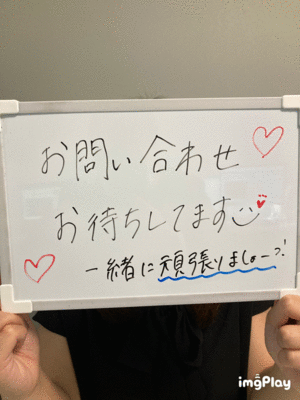 お問い合わせ
お待ちしてます
一緒に頑張りましょーっ!
imgPlay